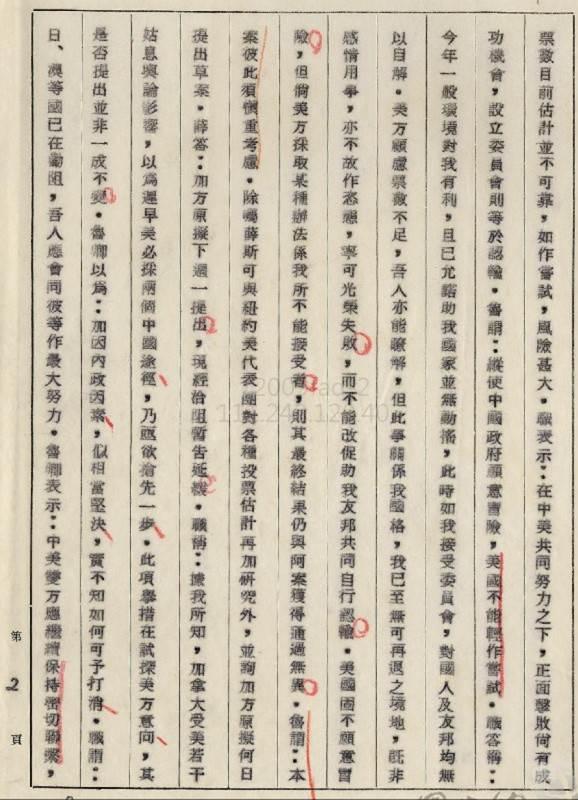 票數目前估計並不可靠，如作嘗試，風險甚大。職表示：在中美共同努力之下，正面擊敗尚有成
功機會，設立委員會則等於認輸。魯謂：縱使中國政府願意冒險，美國不能輕作嘗試。職答稱：
今年一般環境對我有利，且已允諾助我國家並無動搖，此時如我接受委員會，對國人及友邦均無
以自解。美方顧慮票數不足，吾人亦能瞭解，但此事關係我國格，我已至無可再退之境地，既非
感情用事，亦不故作恣態，寧可光榮失敗，而不能改促助我友邦共同自行認輸。美國固不願意冒
險，但倘美方採取某種辦法係我所不能接受者，則其最終結果仍與阿案獲得通過無異。魯謂：本
案彼此須慎重考慮。除囑薛斯可與紐約美代表團對各種投票估計再加研究外，並詢加方原擬何日
提出草案。薛答：加方原擬下週一提出，現經洽阻暫告延緩。職稱：據我所知，加拿大受美若干
姑息輿論影響，以為遲早美必採兩個中國途徑，乃亟欲搶先一步。此項舉措在試探美方意向，其
是否提出並非一成不變。魯卿以為：加因內政因素，似相當堅決，實不知如何可予打消。職謂：
日、澳等國已在勸阻，吾人應會同彼等作最大努力。魯卿表示：中美雙方應繼續保持密切聯繫，
第 2 頁